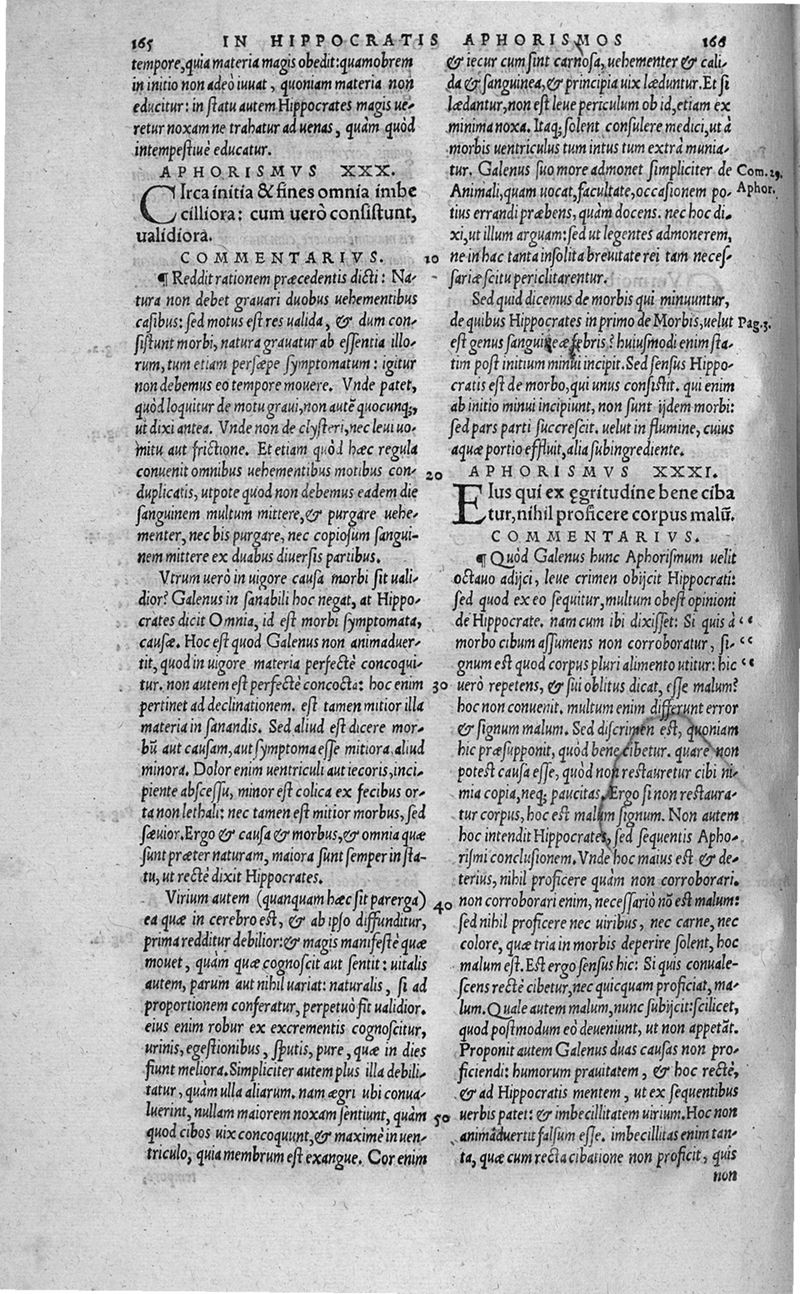 165 IN HIPPOCRATIS APHORISMOS 166
tempore, quia materia magis obedit: quamobrem
in initio non adeò iuuat, quoniam materia non
educitur: in statu autem Hippocrates magis ue-
retur noxam ne trahatur ad uenas, quàm quòd
intempestiuè educatur.
APHORISMVS XXX.
CIrca initia & fines omnia imbe
cilliora: cum uerò consistunt,
ualidiora.
COMMENTARIVS.
¶ Reddit rationem præcedentis dicti: Na-
tura non debet grauari duobus uehementibus
casibus: sed motus est res ualida, & dum con-
sistunt morbi, natura grauatur ab essentia illo-
rum, tum etiam persæpe symptomatum: igitur
non debemus eo tempore mouere. Vnde patet,
quòd loquitur de motu graui, non autẽ quocunq;,
ut dixi antea. Vnde non de clysteri, nec leui uo-
mitu aut frictione. Et etiam quòd hæc regula
conuenit omnibus uehementibus motibus con-
duplicatis, utpote quod non debemus eadem die
sanguinem multum mittere, & purgare uehe-
menter, nec bis purgare, nec copiosum sangui-
nem mittere ex duabus diuersis partibus.
Vtrum uerò in uigore causa morbi sit uali-
dior? Galenus in sanabili hoc negat, at Hippo-
crates dicit Omnia, id est morbi symptomata,
causæ. Hoc est quod Galenus non animaduer-
tit, quod in uigore materia perfectè concoqui-
tur. non autem est perfectè concocta: hoc enim
pertinet ad declinationem. est tamen mitior illa
materia in sanandis. Sed aliud est dicere mor-
bũ aut causam, aut symptoma esse mitiora, aliud
minora. Dolor enim uentriculi aut iecoris, inci-
piente abscessu, minor est colica ex fecibus or-
ta non lethali: nec tamen est mitior morbus, sed
sæuior. Ergo & causa & morbus, & omnia quæ
sunt præter naturam, maiora sunt semper in sta-
tu, ut rectè dixit Hippocrates.
Virium autem (quanquam hæc sit parerga)
ea quæ in cerebro est, & ab ipso diffunditur,
prima redditur debilior: & magis manifestè quæ
mouet, quàm quæ cognoscit aut sentit: uitalis
autem, parum aut nihil uariat: naturalis, si ad
proportionem conferatur, perpetuò fit ualidior.
eius enim robur ex excrementis cognoscitur,
urinis, egestionibus, sputis, pure, quæ in dies
fiunt meliora. Simpliciter autem plus illa debili-
tatur, quàm ulla aliarum. nam ægri ubi conua-
luerint, nullam maiorem noxam sentiunt, quàm
quod cibos uix concoquunt, & maximè in uen-
triculo, quia membrum est exangue. Cor enim
10
20
30
40
50
& iecur cum sint carnosa, uehementer & cali-
da & sanguinea, & principia uix læduntur. Et si
lædantur, non est leue periculum ob id, etiam ex
minima noxa. Itaq; solent consulere medici, ut à
morbis uentriculus tum intus tum extrà munia-
tur. Galenus suo more admonet simpliciter de
Animali, quam uocat, facultate, occasionem po-
tius errandi præbens, quàm docens. nec hoc di-
xi, ut illum arguam: sed ut legentes admonerem,
ne in hac tanta insolita breuitate rei tam neces-
sariæ scitu periclitarentur.
Com. 29.
Aphor.
Sed quid dicemus de morbis qui minuuntur,
de quibus Hippocrates in primo de Morbis, uelut
est genus sanguineæ febris? huiusmodi enim sta-
tim post initium minui incipit. Sed sensus Hippo-
cratis est de morbo, qui unus consistit. qui enim
ab initio minui incipiunt, non sunt ijdem morbi:
sed pars parti succrescit. uelut in flumine, cuius
aquæ portio effluit, alia subingrediente.
Pag. 3.
APHORISMVS XXXI.
EIus qui ex ęgritudine bene ciba
tur, nihil proficere corpus malũ.
COMMENTARIVS.
¶ Quòd Galenus hunc Aphorismum uelit
octauo adijci, leue crimen obijcit Hippocrati:
sed quod ex eo sequitur, multum obest opinioni
de Hippocrate. nam cum ibi dixisset: Si quis à “
morbo cibum assumens non corroboratur, si- “
gnum est quod corpus pluri alimento utitur: hic “
uerò repetens, & sui oblitus dicat, esse malum?
hoc non conuenit. multum enim differunt error
& signum malum. Sed discrimen est, quoniam
hic præsupponit, quòd bene cibetur. quare non
potest causa esse, quòd non restauretur cibi ni-
mia copia, neq; paucitas. Ergo si non restaura-
tur corpus, hoc est malum signum. Non autem
hoc intendit Hippocrates, sed sequentis Apho-
rismi conclusionem. Vnde hoc maius est & de-
terius, nihil proficere quàm non corroborari.
non corroborari enim, necessariò nõ est malum:
sed nihil proficere nec uiribus, nec carne, nec
colore, quæ tria in morbis deperire solent, hoc
malum est. Est ergo sensus hic: Si quis conuale-
scens rectè cibetur, nec quicquam proficiat, ma-
lum. Quale autem malum, nunc subijcit: scilicet,
quod postmodum eò deueniunt, ut non appetãt.
Proponit autem Galenus duas causas non pro-
ficiendi: humorum prauitatem, & hoc rectè,
& ad Hippocratis mentem, ut ex sequentibus
uerbis patet: & imbecillitatem uirium. Hoc non
animaduertit falsum esse. imbecillitas enim tan-
ta, quæ cum recta cibatione non proficit, quis
non